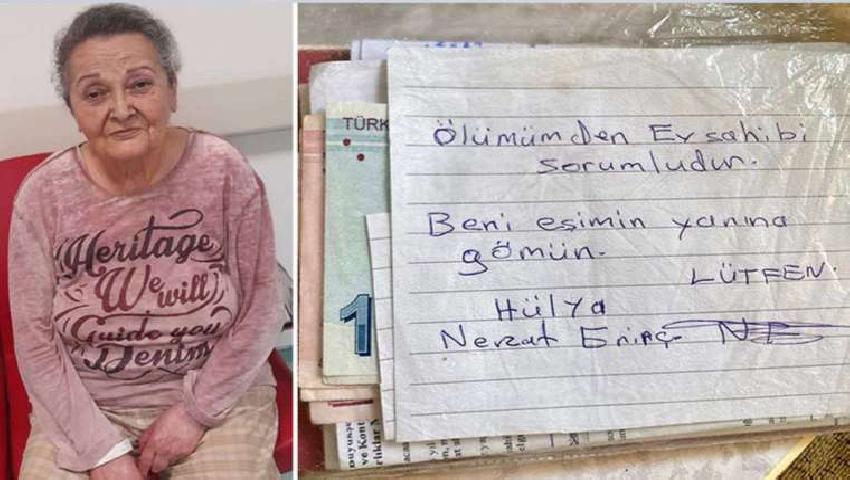 Heritage
We will
Guide you
Denim
TÜRK
1
Ölümümden Ev sahibi
sorumludur.
Beni eşimin yanına
gömün.
LÜTFEN.
Hülya
Nevzat
ve Kont